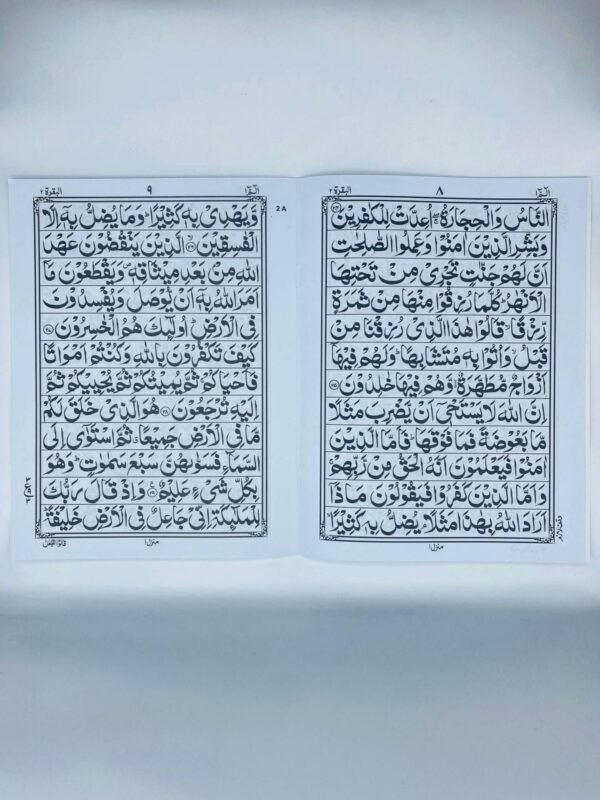 الٓمّٓ ١
٨
البقرة ٢
النَّاسُ وَالْحِجَارَةُ ۚۖ اُعِدَّتْ لِلْكٰفِرِيْنَ ﴿٢٤﴾
وَبَشِّرِ الَّذِيْنَ اٰمَنُوْا وَعَمِلُوا الصّٰلِحٰتِ
اَنَّ لَهُمْ جَنّٰتٍ تَجْرِىْ مِنْ تَحْتِهَا
الْاَنْهٰرُ ؕ كُلَّمَا رُزِقُوْا مِنْهَا مِنْ ثَمَرَةٍ
رِّزْقًا ۙ قَالُوْا هٰذَا الَّذِىْ رُزِقْنَا مِنْ
قَبْلُ ۙ وَاُتُوْا بِهٖ مُتَشَابِهًا ؕ وَلَهُمْ فِيْهَآ
اَزْوَاجٌ مُّطَهَّرَةٌ ۙ وَّهُمْ فِيْهَا خٰلِدُوْنَ ﴿٢٥﴾
اِنَّ اللّٰهَ لَا يَسْتَحْىٖٓ اَنْ يَّضْرِبَ مَثَلًا
مَّا بَعُوْضَةً فَمَا فَوْقَهَا ؕ فَاَمَّا الَّذِيْنَ
اٰمَنُوْا فَيَعْلَمُوْنَ اَنَّهُ الْحَقُّ مِنْ رَّبِّهِمْ ۚ
وَاَمَّا الَّذِيْنَ كَفَرُوْا فَيَقُوْلُوْنَ مَاذَآ
اَرَادَ اللّٰهُ بِهٰذَا مَثَلًا ۘ يُضِلُّ بِهٖ كَثِيْرًا ۙ
منزل ١
الٓمّٓ ١
٩
البقرة ٢
2 A
وَّيَهْدِىْ بِهٖ كَثِيْرًا ؕ وَمَا يُضِلُّ بِهٖٓ اِلَّا
الْفٰسِقِيْنَ ﴿٢٦﴾ الَّذِيْنَ يَنْقُضُوْنَ عَهْدَ
اللّٰهِ مِنْۢ بَعْدِ مِيْثَاقِهٖ ۪ وَيَقْطَعُوْنَ مَآ
اَمَرَ اللّٰهُ بِهٖٓ اَنْ يُّوْصَلَ وَيُفْسِدُوْنَ
فِى الْاَرْضِ ؕ اُولٰٓئِكَ هُمُ الْخٰسِرُوْنَ ﴿٢٧﴾
كَيْفَ تَكْفُرُوْنَ بِاللّٰهِ وَكُنْتُمْ اَمْوَاتًا
فَاَحْيَاكُمْ ۚ ثُمَّ يُمِيْتُكُمْ ثُمَّ يُحْيِيْكُمْ ثُمَّ
اِلَيْهِ تُرْجَعُوْنَ ﴿٢٨﴾ هُوَ الَّذِىْ خَلَقَ لَكُمْ
مَّا فِى الْاَرْضِ جَمِيْعًا ۗ ثُمَّ اسْتَوٰٓى اِلَى
السَّمَآءِ فَسَوّٰىهُنَّ سَبْعَ سَمٰوٰتٍ ؕ وَهُوَ
بِكُلِّ شَىْءٍ عَلِيْمٌ ﴿٢٩﴾ وَاِذْ قَالَ رَبُّكَ
لِلْمَلٰٓئِكَةِ اِنِّىْ جَاعِلٌ فِى الْاَرْضِ خَلِيْفَةً ؕ
منزل ١